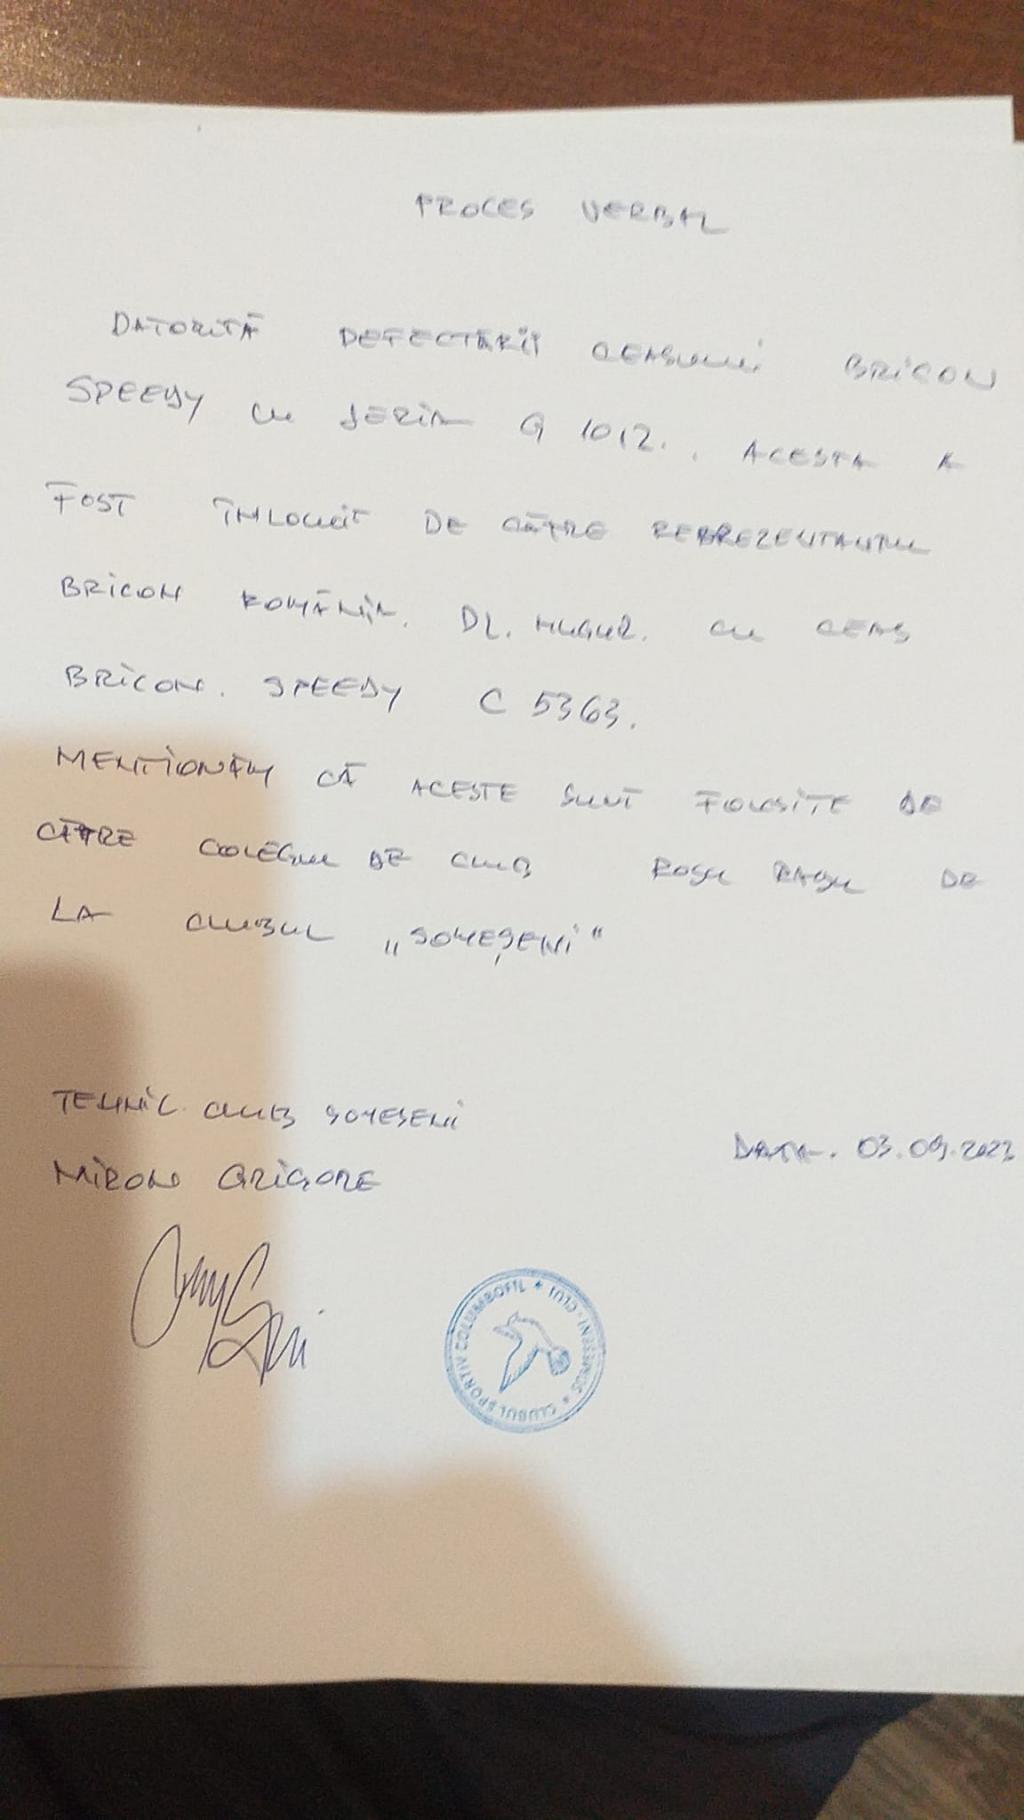 PROCES VERBAL
DATORITĂ DEFECTĂRII CEASULUI BRICON
SPEEDY CU SERIA G 1012.. ACESTA A
FOST ÎNLOCUIT DE CĂTRE REPREZENTANTUL
BRICON ROMÂNIA. DL. MUGUR. CU CEAS
BRICON. SPEEDY C 5363.
MENTIONĂM CĂ ACESTE SUNT FOLOSITE DE
CĂTRE COLEGUL DE CLUB ROȘU RADU DE
LA CLUBUL „SOMEȘENI“
TEHNIC CLUB SOMESENI
DATA. 03.09.2023
MIRON GRIGORE
CLUBUL SPORTIV COLUMBOFIL * SOMESENI - CLUJ *